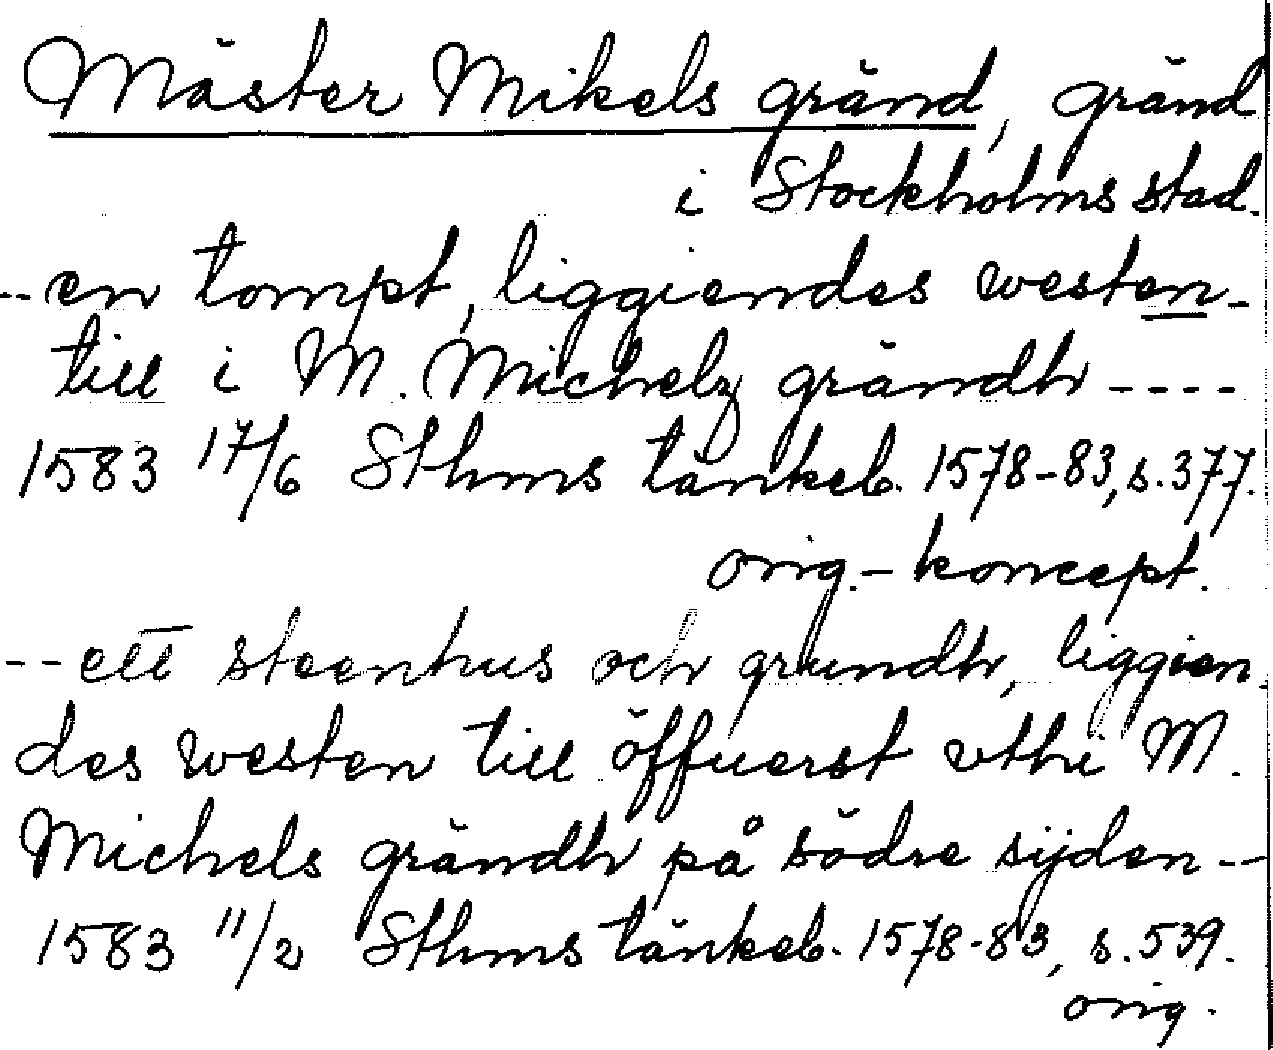 Mäster Mikels gränd, gränd
i Stockholms stad.
--en tompt, liggiendes westen-
till i M. Michelz grändh ----
1583 17/6 Sthms tänkeb. 1578-83, s. 377.
orig.-koncept.
--ett steenhus och grundh, liggien-
des westen till öffuerst vthi M.
Michels grändh på södre sijden --
1583 11/2 Sthms tänkeb. 1578-83, s. 539.
orig.